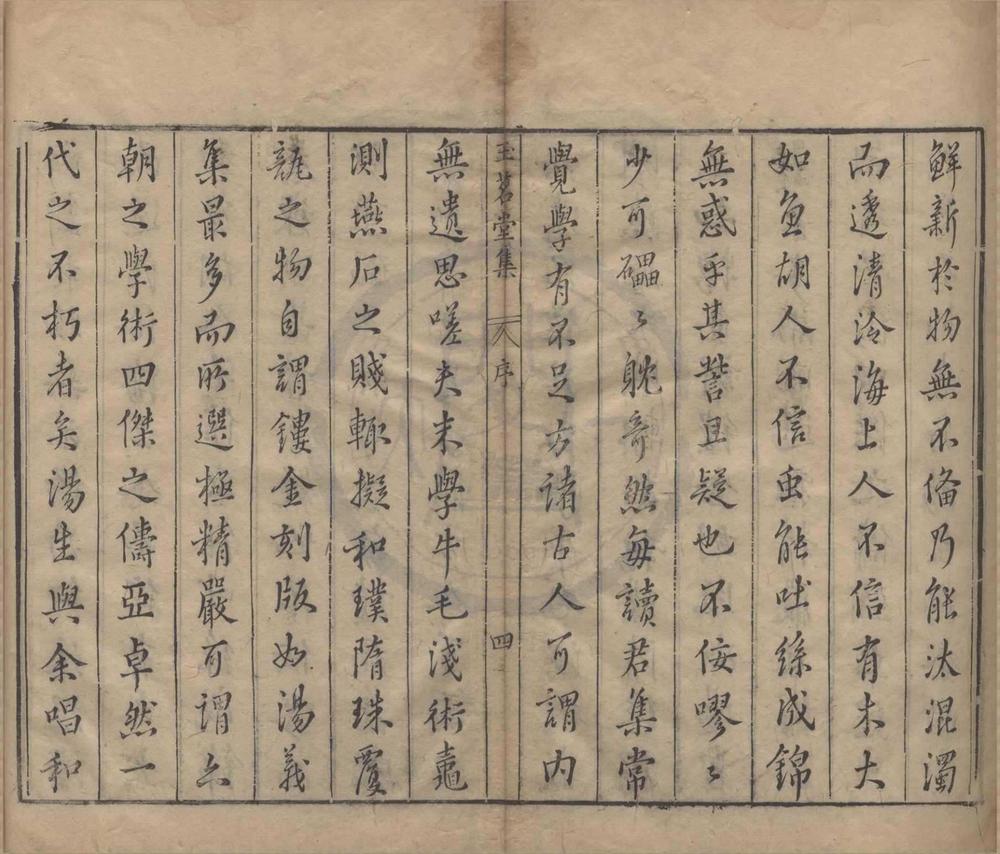 鮮新於物無不俻乃能汰混濁
而透清泠海上人不信有木大
如魚胡人不信䖝能吐絲成錦
無惑乎其訾且疑也不佞嘐〻
少可礧〻躭竒然每讀君集常
覺學有不足方諸古人可謂內
玉茗堂集 序 四
無遺思嗟夫末學牛毛淺術黽
測燕石之賤輙擬和璞隋珠覆
瓿之物自謂鏤金刻版如湯義
集最多而所選極精嚴可謂六
朝之學術四傑之儔亞卓然一
代之不朽者矣湯生與余唱和